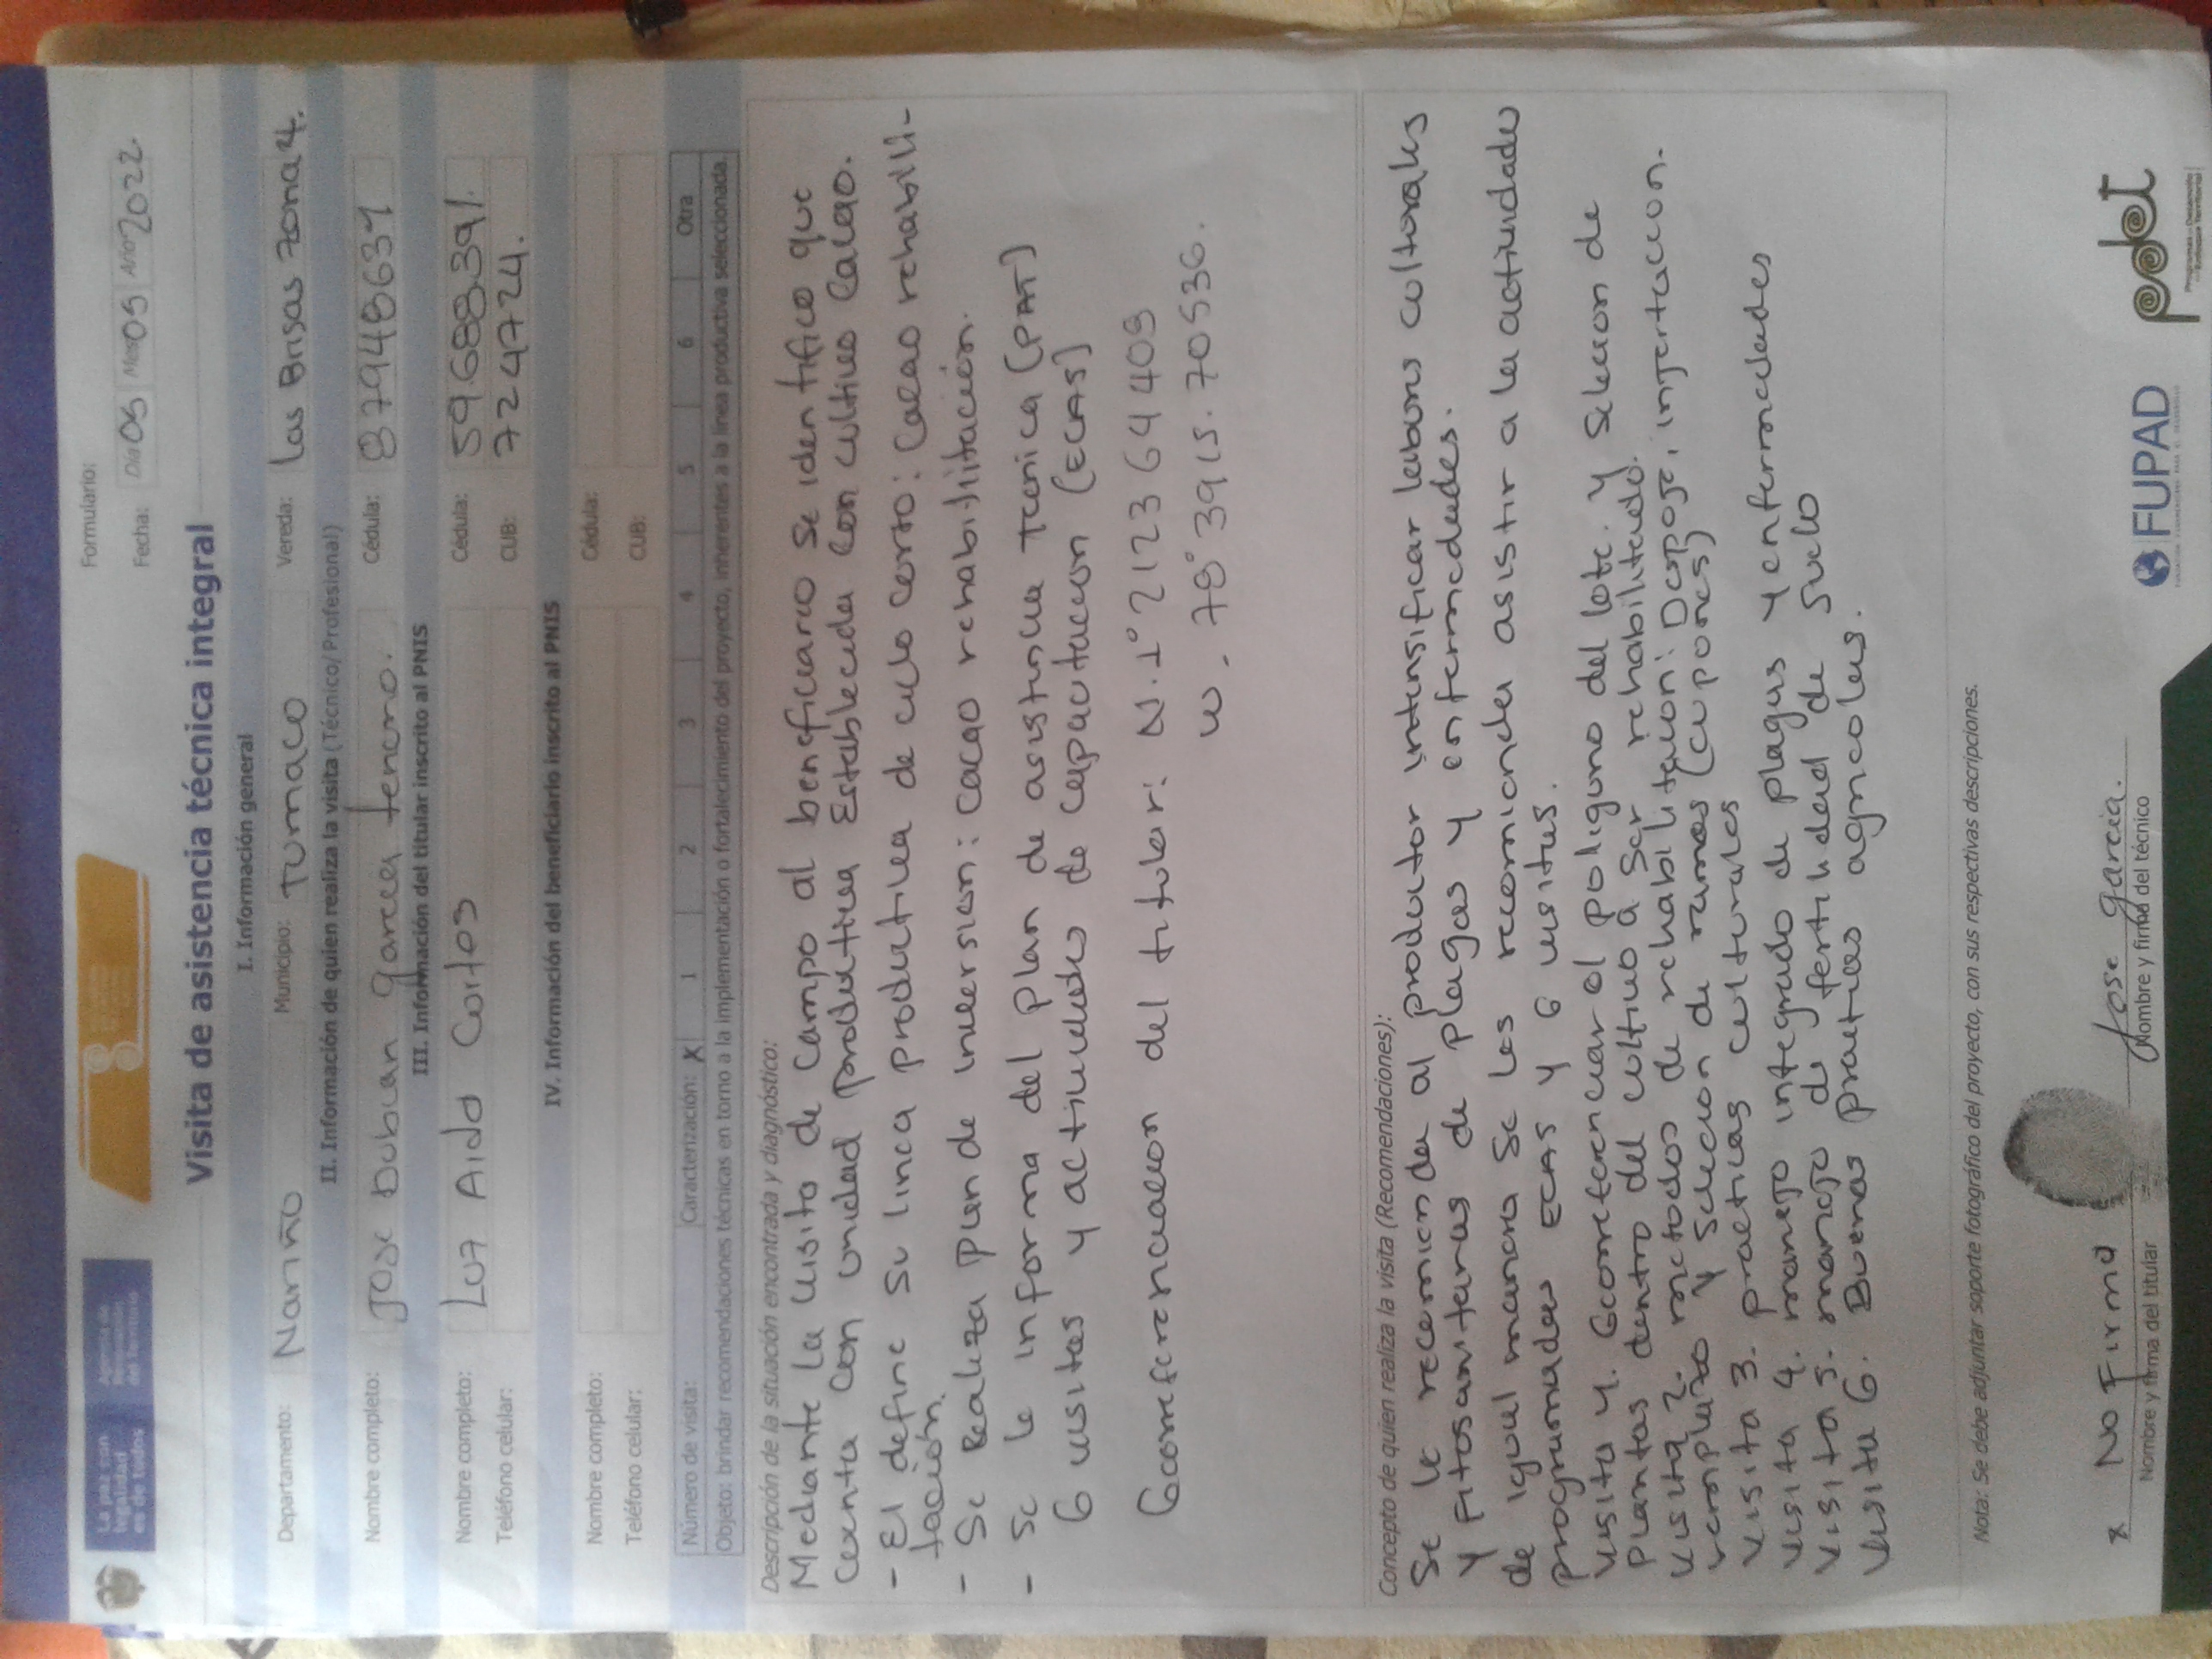 La paz con
legalidad
es de todos
Agencia de
Renovación
del Territorio
Formulario:
Fecha: Día 05 Mes 05 Año 2022
Visita de asistencia técnica integral
I. Información general
Departamento: Nariño Municipio: Tumaco Vereda: Las Brisas zona 4.
II. Información de quien realiza la visita (Técnico/ Profesional)
Nombre completo: Jose Duban garcia tenorio. Cédula: 87948631
III. Información del titular inscrito al PNIS
Nombre completo: Luz Aida Cortes Cédula: 59.688.391.
Teléfono celular: CUB: 724724.
IV. Información del beneficiario inscrito al PNIS
Nombre completo: Cédula:
Teléfono celular: CUB:
Número de visita: Caracterización: X 1 2 3 4 5 6 Otra
Objeto: brindar recomendaciones técnicas en torno a la implementación o fortalecimiento del proyecto, inherentes a la línea productiva seleccionada.
Descripción de la situación encontrada y diagnóstico:
Mediante la visita de campo al beneficiario se identifico que
Cuenta con unidad productiva Establecida con cultivo Cacao.
- El define su linea productiva de ciclo corto: Cacao rehabili-
tación.
- Se Realiza plan de inversion: cacao rehabilitación.
- Se le informa del plan de asistencia tecnica (PAT)
6 visitas y actividades de capacitacion (ECAS)
Georreferenciacion del titular: N. 1° 21 23 64 409
W. 78° 39 15. 70536.
Concepto de quien realiza la visita (Recomendaciones):
Se le recomienda al productor intensificar labores culturales
y Fitosanitarias de plagas y enfermedades.
de igual manera Se les recomienda asistir a la actividades
programadas ECAS y 6 visitas.
Visita 1. Georreferenciar el poligono del lote. y Seleccion de
plantas dentro del cultivo a ser rehabilitado.
Visita 2. metodos de rehabilitacion: Despoje, injertacion.
remplazo y seleccion de ramas (cupones)
Visita 3. practicas culturales
Visita 4. manejo integrado de plagas y enfermedades
Visita 5. manejo de fertilidad de Suelo
Visita 6. Buenas practicas agricolas.
Nota: Se debe adjuntar soporte fotográfico del proyecto, con sus respectivas descripciones.
x No Firma Jose garcia.
Nombre y firma del titular Nombre y firma del técnico
FUPAD
pdet